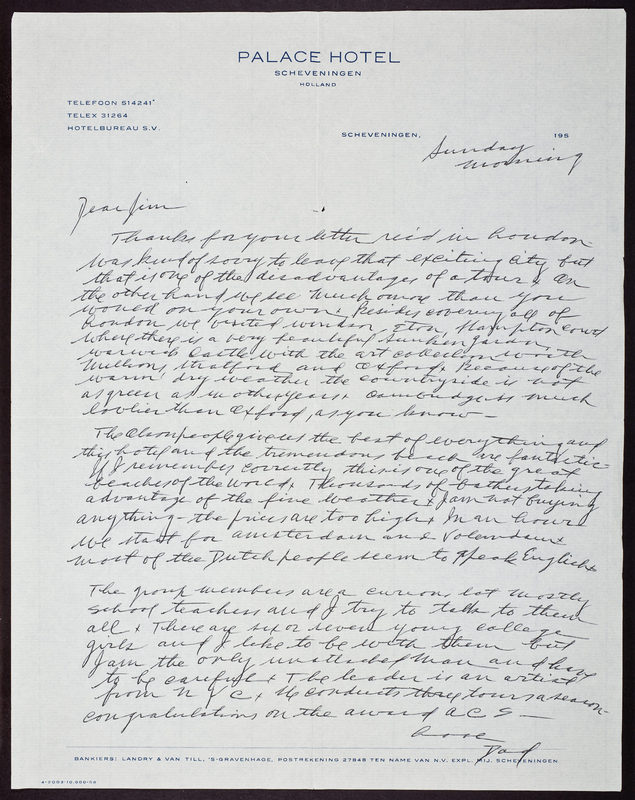 PALACE HOTEL
SCHEVENINGEN
HOLLAND
TELEFOON 514241*
TELEX 31264
HOTELBUREAU S.V.
SCHEVENINGEN, 195
Sunday
morning
Dear Jim
Thanks for your letter rec'd in London
Was kind of sorry to leave that exciting city but
that is one of the disadvantages of a tour + On
the other hand we see much more than you
would on your own + Besides covering all of
London we visited Windsor, Eton, Hampton Court
where there is a very beautiful sunken garden,
Warwick Castle with the art collection worth
Millions, Stratford and Oxford + Because of the
warm dry weather the countryside is not
as green as in other years + Cambridge is much
lovlier than Oxford, as you know —
The Olson people give us the best of everything and
this hotel and the tremendous beach are fantastic -
If I remember correctly this is one of the great
beaches of the world + Thousands of bathers taking
advantage of the fine weather + I am not buying
anything - the prices are too high + In an hour
we start for Amsterdam and Volendam +
most of the Dutch people seem to speak English +
The group members are a curious lot mostly
school teachers and I try to talk to them
all + There are six or seven young college
girls and I like to be with them but
I am the only unattached man and have
to be careful + The leader is an artist
from N Y C + He conducts three tours a season -
Congratulations on the award A C S —
Love
Dad
BANKIERS: LANDRY & VAN TILL, 'S-GRAVENHAGE, POSTREKENING 27848 TEN NAME VAN N.V. EXPL. MIJ. SCHEVENINGEN.